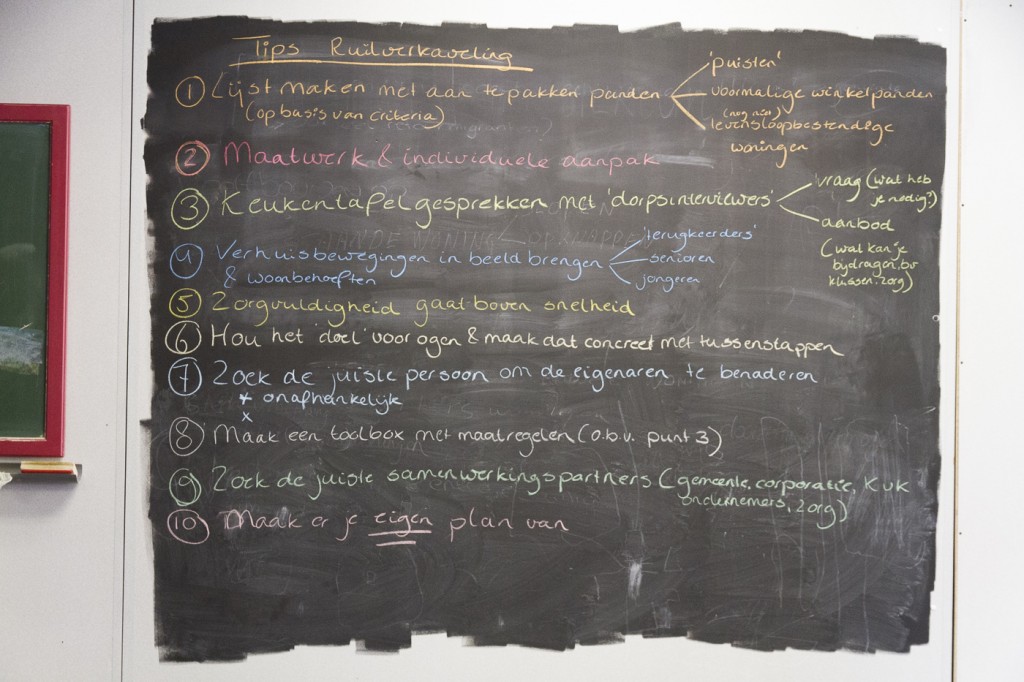 Tips Ruilverkaveling
① Lijst maken met aan te pakken panden
(op basis van criteria)
'puisten'
voormalige winkelpanden
(nog niet)
levensloopbestendige
woningen
② Maatwerk & individuele aanpak
③ Keukentafelgesprekken met 'dorpsinterviewers'
vraag (wat heb
je nodig?)
aanbod
(wat kan je
bijdragen, bv
klussen, zorg)
4 Verhuisbewegingen in beeld brengen
& woonbehoeften
'terugkeerders'
senioren
jongeren
⑤ Zorgvuldigheid gaat boven snelheid
⑥ Hou het 'doel' voor ogen & maak dat concreet met tussenstappen
⑦ Zoek de juiste persoon om de eigenaren te benaderen
* onafhankelijk
x
⑧ Maak een toolbox met maatregelen (o.b.v. punt 3)
⑨ Zoek de juiste samenwerkingspartners (gemeente, corporatie, KvK
ondernemers, zorg)
⑩ Maak er je eigen plan van